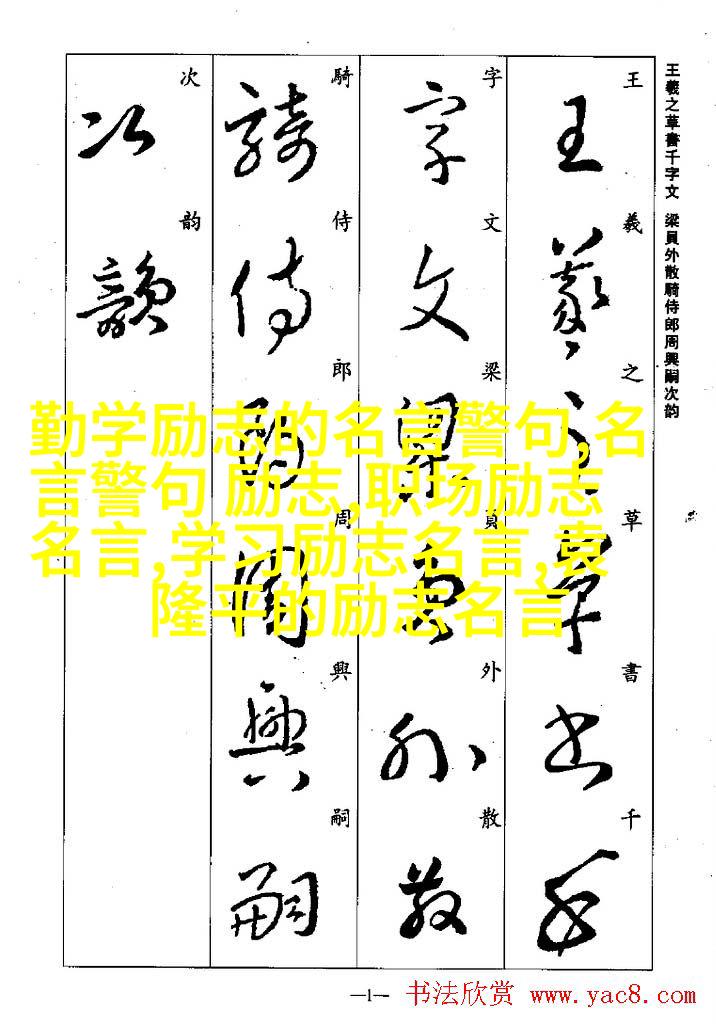 王羲之草書千字文 梁員外散騎侍郎周興嗣次韵
王羲之草書千
字文梁員外散
騎侍郎周興嗣
次韵
勤学励志的名言警句,名
言警句 励志,职场励志
名言,学习励志名言,袁
隆平的励志名言
—1—
书法欣赏 www.yac8.com